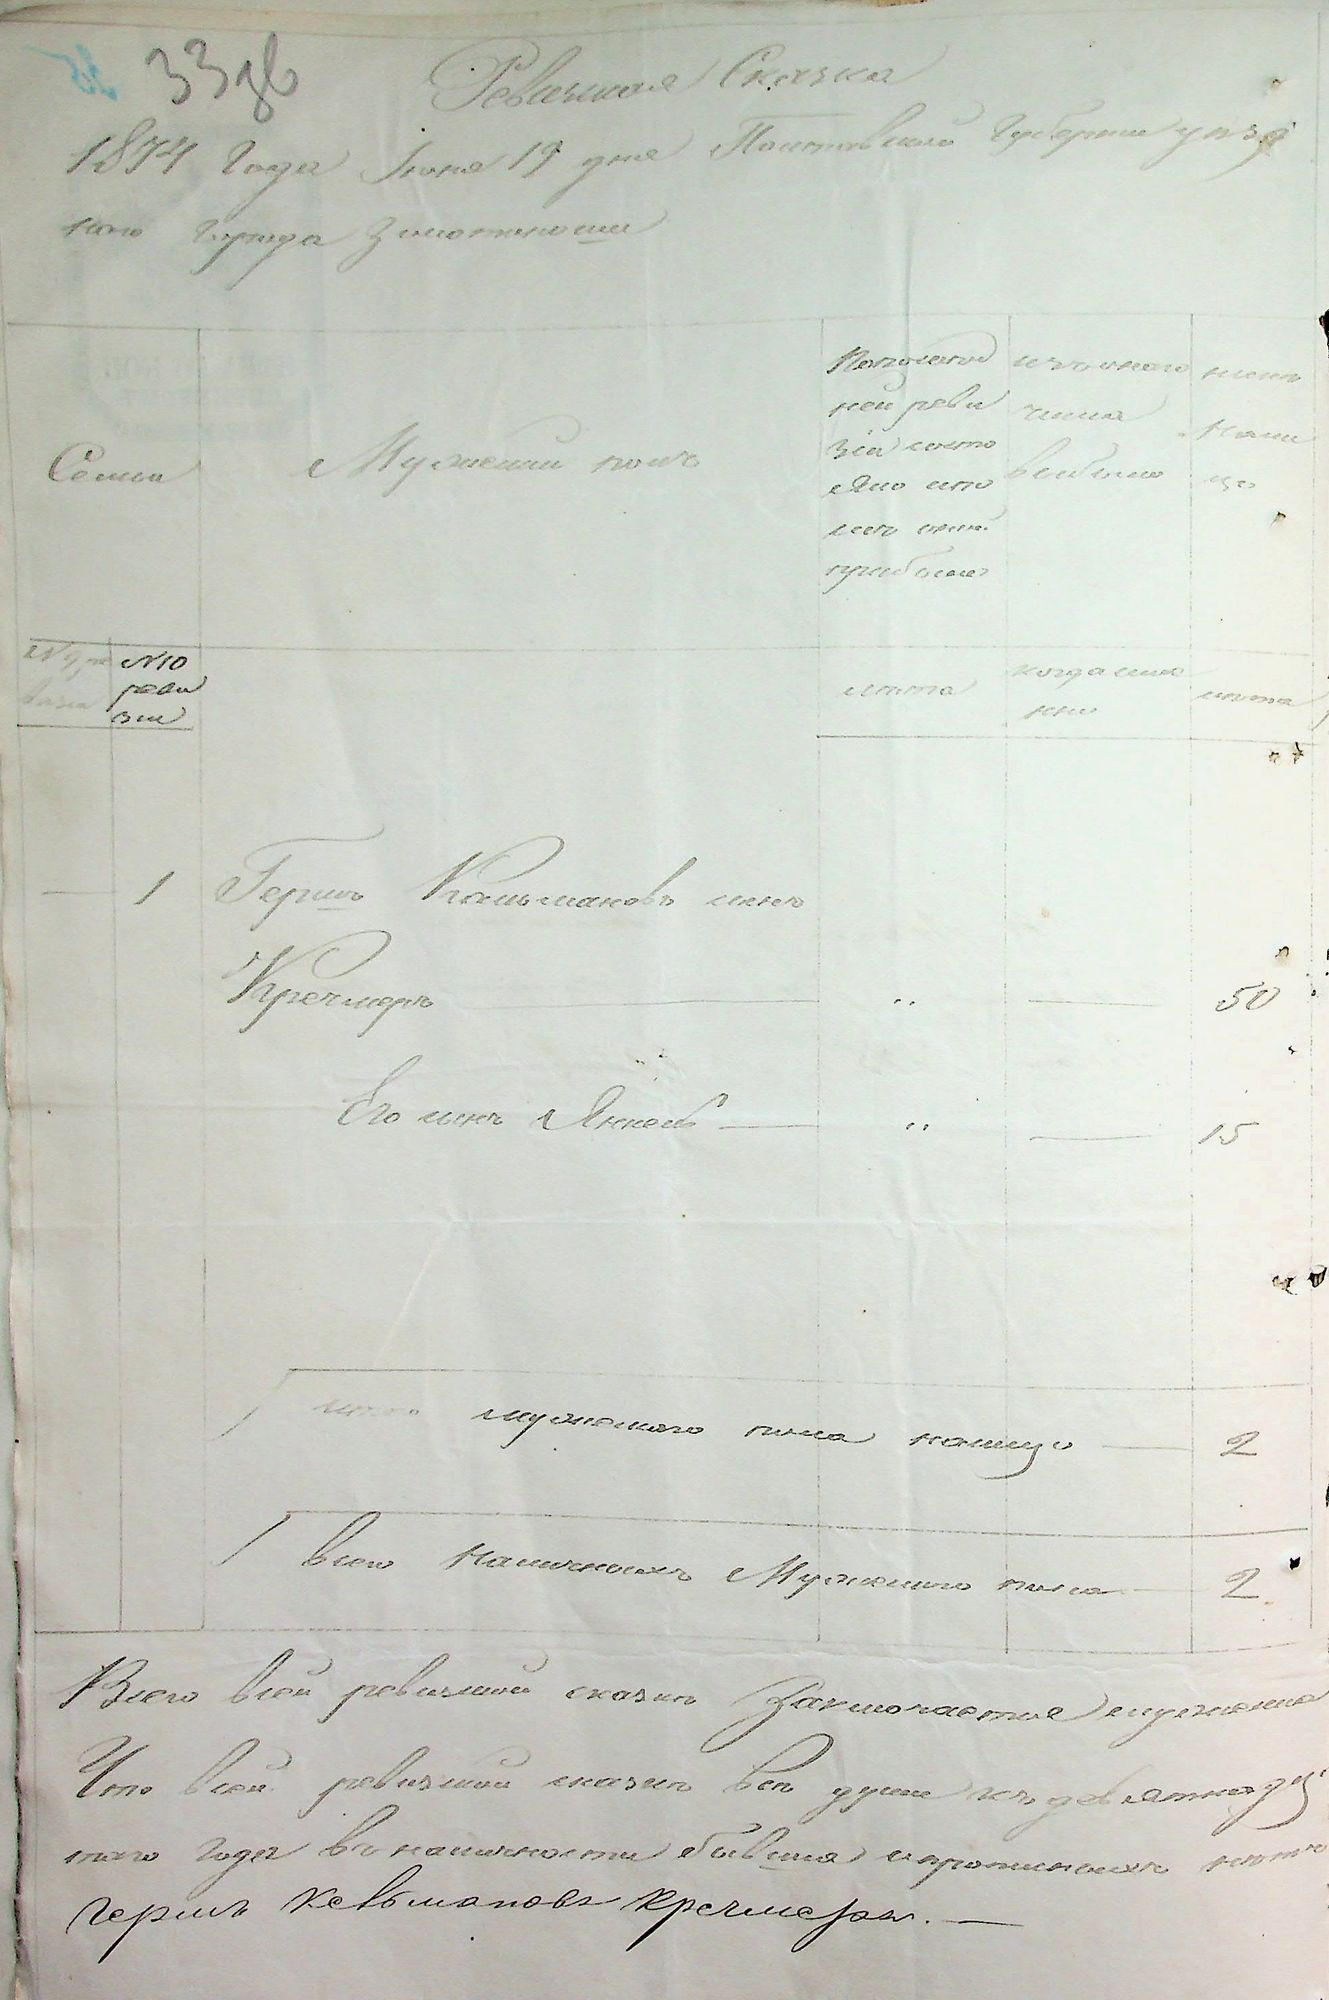 33 зв
Ревизская Сказка
1874 года Июня 19 дня Полтавской Губернии уезд
ного города Золотоноши
Семьи
Мужеский полъ
По последней ревизіи состояло и после оной прибыло
изъ оного числа выбыло
ныне на лицо
№ 9 ре
визіи
№ 10
реви
зіи
лета
когда именно
лета
1 Гершъ Кальмановъ сынъ
Кречмеръ — „ — 50
Его сынъ Янкель — „ — 15
итого мужеского пола налицо — 2
Всего наличныхъ Мужеского пола — 2
Всего в сей ревизской сказки заключается мужеска
Что в сей ревизской сказки все души къ девятнадца
того года въ наличности бывша и прописныхъ нетъ
Гершъ Кевьмановъ Кречмеръ. —